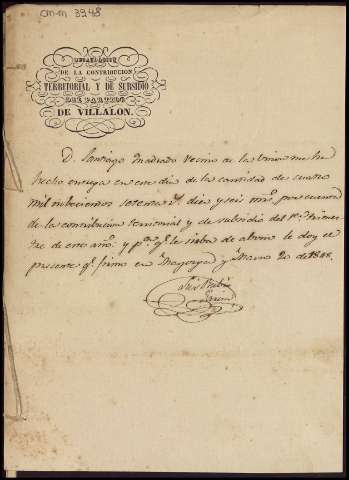 CM-M 3948
RECAUDACION
DE LA CONTRIBUCION
TERRITORIAL Y DE SUBSIDIO
DEL PARTIDO
DE VILLALON.
D. Santiago Quadrado Vecino de la Union me ha
hecho entrega en este dia de la cantidad de cuatro
mil nobecientos setenta y diez y seis mrs. por cuenta
de la contribucion territorial y de subsidio del 1er. trimes
tre de este año. y pa. qe. le sirba de abono le doy el
presente qe. firmo en Mayorga y Marzo 20 de 1848.
Luis